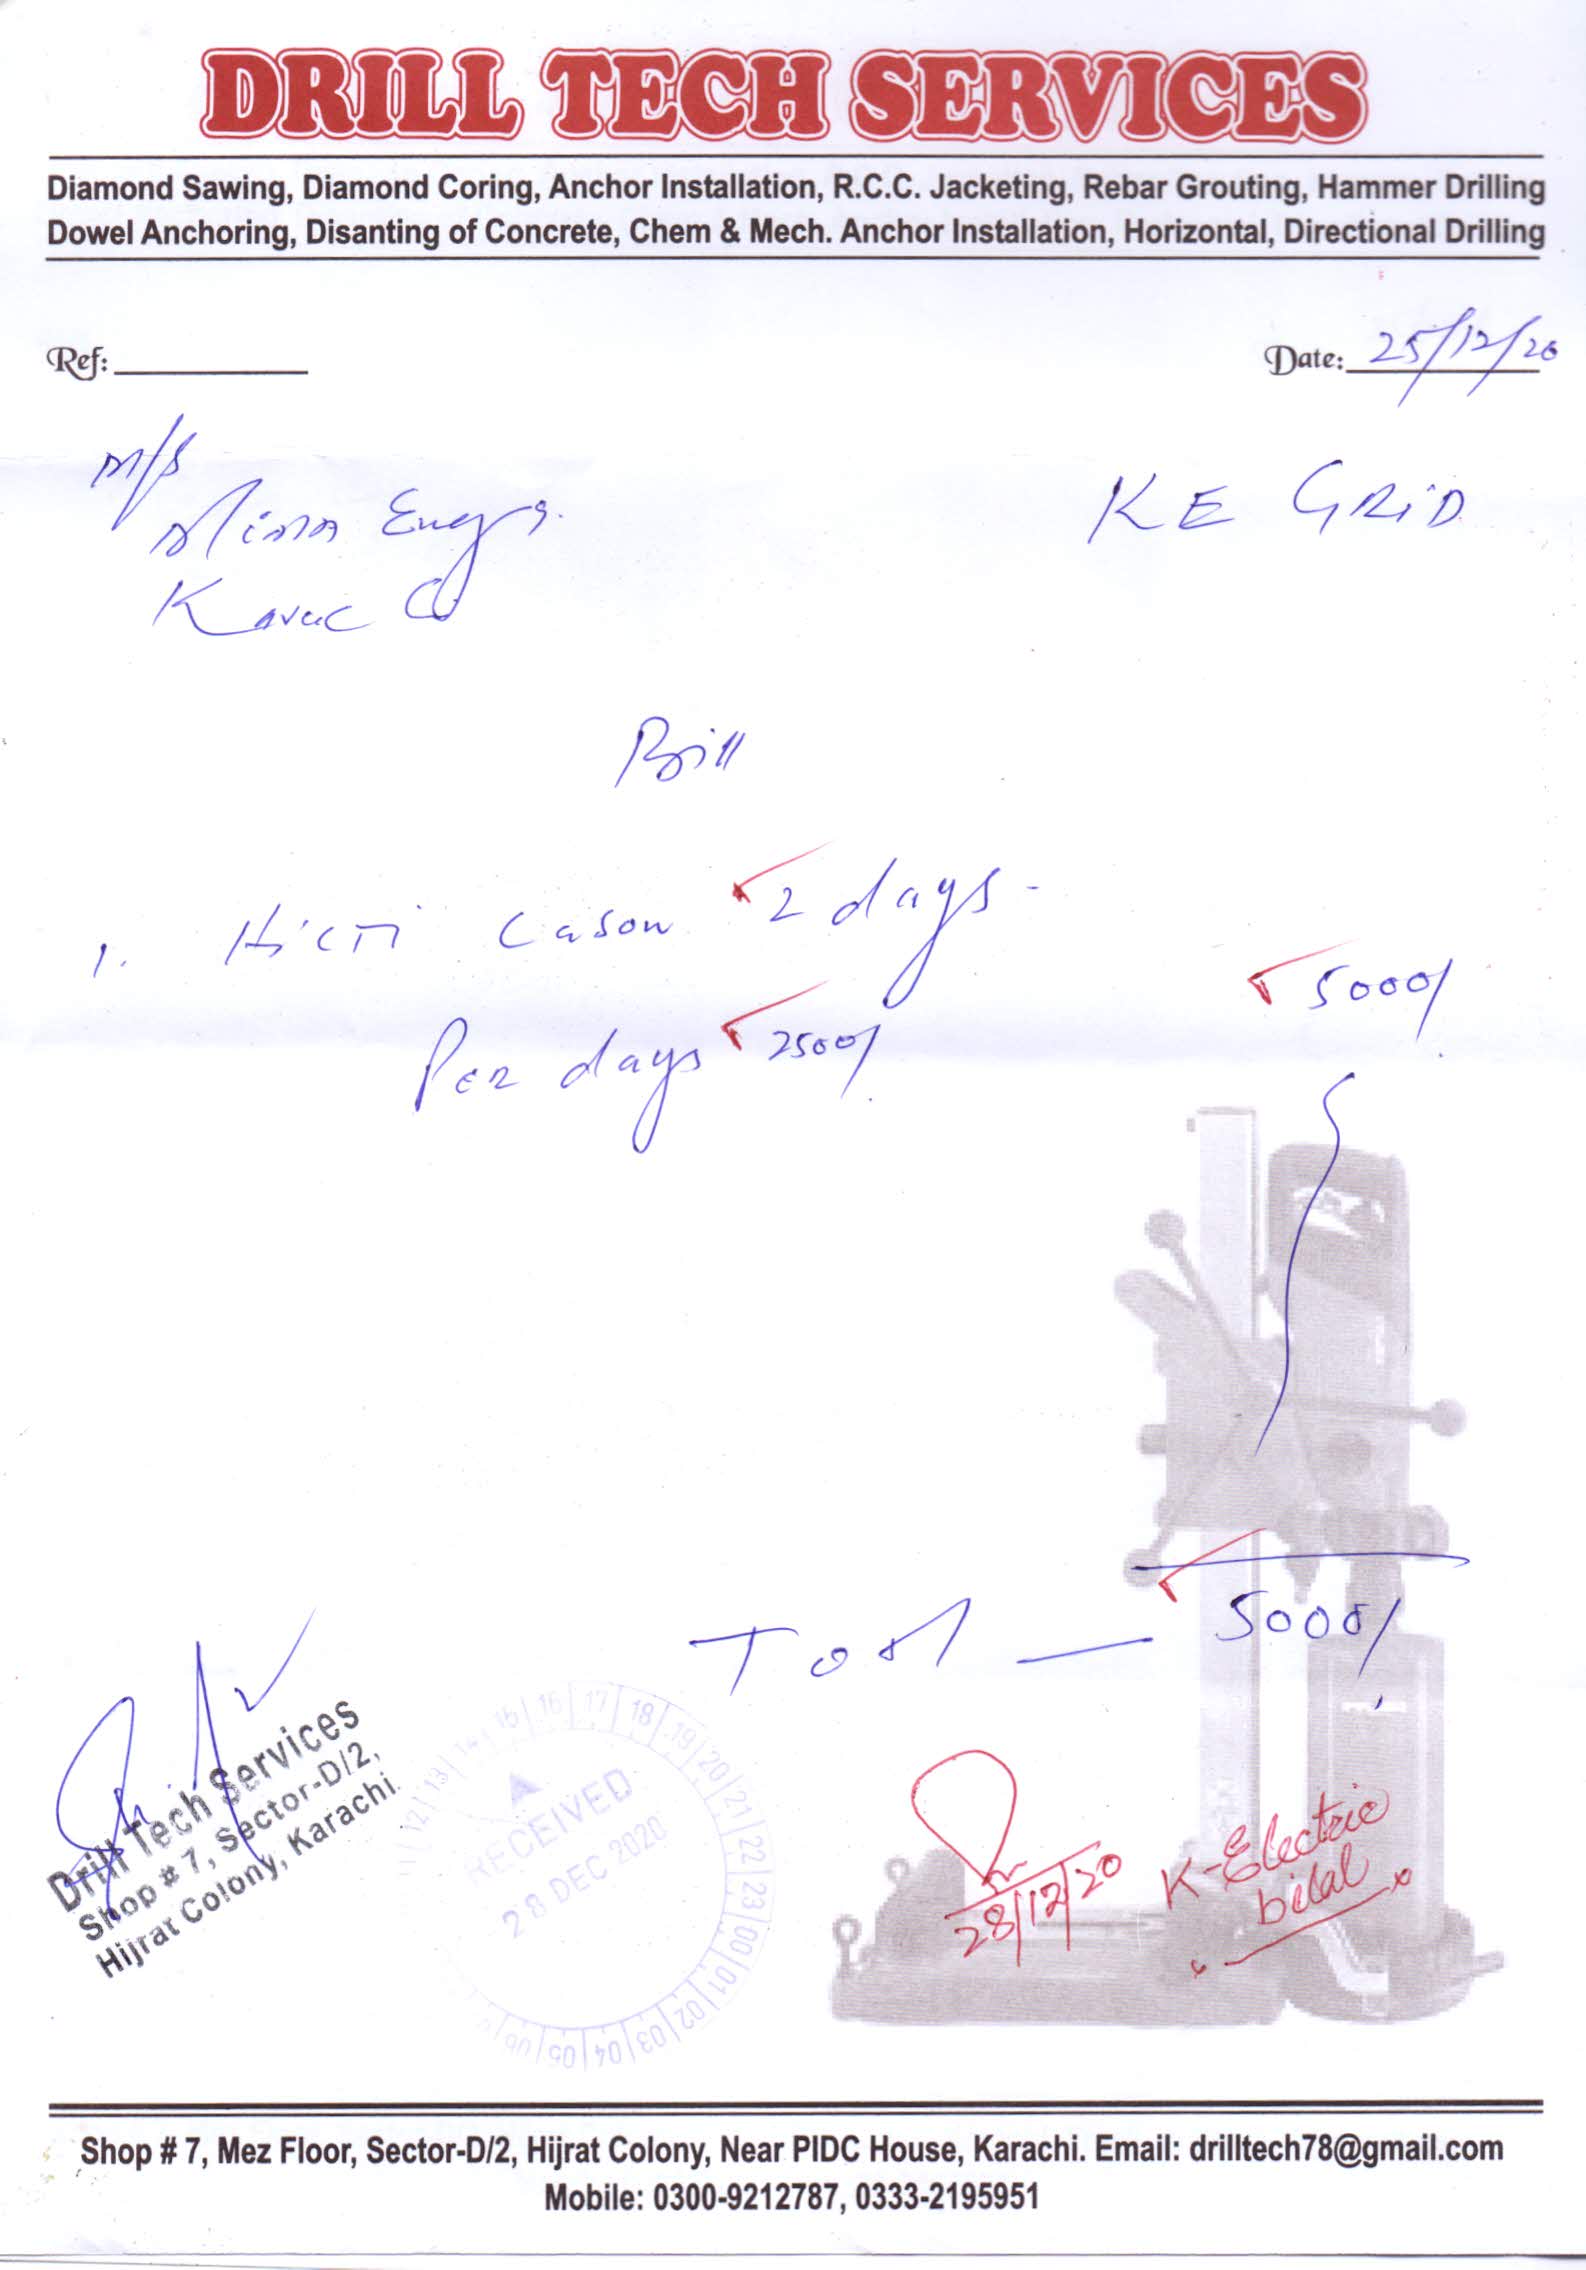 DRILL TECH SERVICES
Diamond Sawing, Diamond Coring, Anchor Installation, R.C.C. Jacketing, Rebar Grouting, Hammer Drilling
Dowel Anchoring, Disanting of Concrete, Chem & Mech. Anchor Installation, Horizontal, Directional Drilling
Ref: Date: 25/12/20
M/S
KE GRiD
Bill
1. Hicti Cason 2 days -
5000/
Per days 2500/
Totl — 5000/
Drill Tech Services
Shop # 7, Sector-D/2,
Hijrat Colony, Karachi.
12 13 14 15 16 17 18 19 20 21 22 23 00 01 02 03 04 05 06
RECEIVED
28 DEC 2020
28/12/20
K-Electric
bilal
Shop # 7, Mez Floor, Sector-D/2, Hijrat Colony, Near PIDC House, Karachi. Email: drilltech78@gmail.com
Mobile: 0300-9212787, 0333-2195951